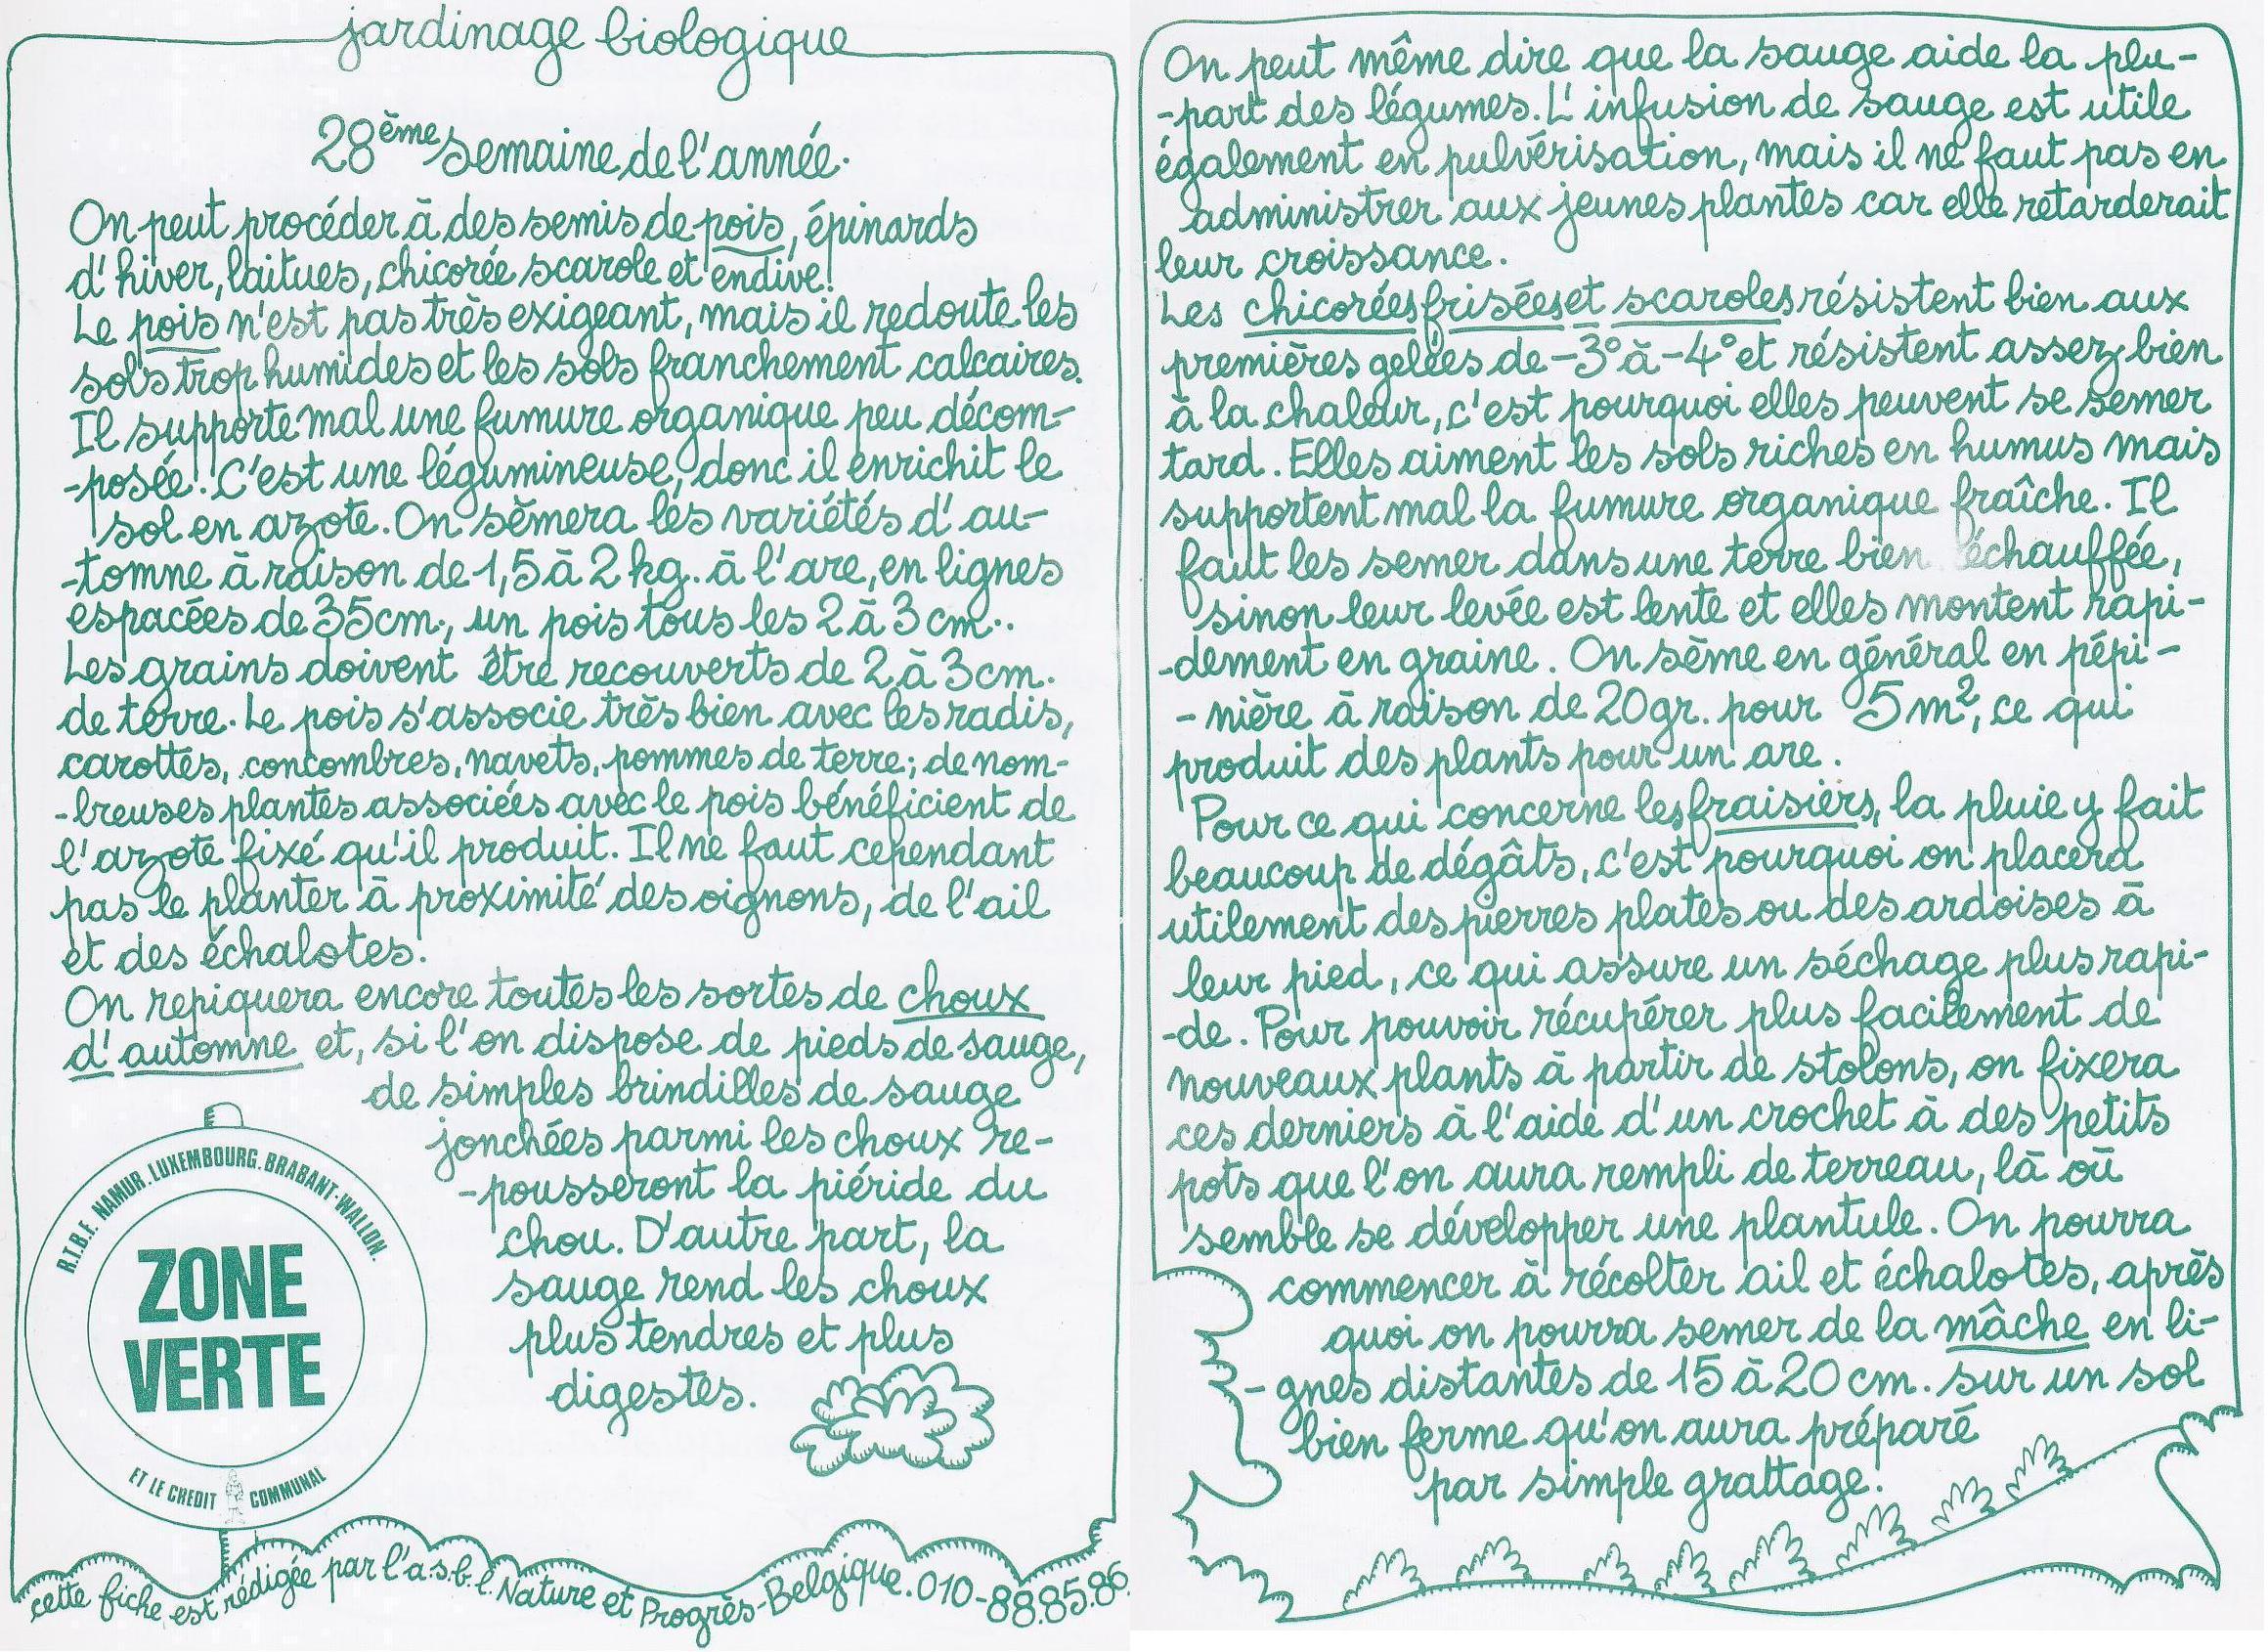 jardinage biologique
28ème semaine de l'année.
On peut procéder à des semis de pois, épinards
d'hiver, laitues, chicorée scarole et endive.
Le pois n'est pas très exigeant, mais il redoute les
sols trop humides et les sols franchement calcaires.
Il supporte mal une fumure organique peu décom-
-posée. C'est une légumineuse, donc il enrichit le
sol en azote. On sèmera les variétés d'au-
-tomne à raison de 1,5 à 2 kg. à l'are, en lignes
espacées de 35cm., un pois tous les 2 à 3 cm..
Les grains doivent être recouverts de 2 à 3cm.
de terre. Le pois s'associe très bien avec les radis,
carottes, concombres, navets, pommes de terre; de nom-
-breuses plantes associées avec le pois bénéficient de
l'azote fixé qu'il produit. Il ne faut cependant
pas le planter à proximité des oignons, de l'ail
et des échalotes.
On repiquera encore toutes les sortes de choux
d'automne et, si l'on dispose de pieds de sauge,
de simples brindilles de sauge
jonchées parmi les choux re-
-pousseront la piéride du
chou. D'autre part, la
sauge rend les choux
plus tendres et plus
digestes.
R.T.B.F. NAMUR. LUXEMBOURG. BRABANT-WALLON.
ZONE
VERTE
ET LE CREDIT COMMUNAL
cette fiche est rédigée par l'a.s.b.l. Nature et Progrès-Belgique. 010-88.85.86.
On peut même dire que la sauge aide la plu-
-part des légumes. L'infusion de sauge est utile
également en pulvérisation, mais il ne faut pas en
administrer aux jeunes plantes car elle retarderait
leur croissance.
Les chicorées frisées et scaroles résistent bien aux
premières gelées de -3° à -4° et résistent assez bien
à la chaleur, c'est pourquoi elles peuvent se semer
tard. Elles aiment les sols riches en humus mais
supportent mal la fumure organique fraîche. Il
faut les semer dans une terre bien échauffée,
sinon leur levée est lente et elles montent rapi-
-dement en graine. On sème en général en pépi-
-nière à raison de 20gr. pour 5 m², ce qui
produit des plants pour un are.
Pour ce qui concerne les fraisiers, la pluie y fait
beaucoup de dégâts, c'est pourquoi on placera
utilement des pierres plates ou des ardoises à
leur pied, ce qui assure un séchage plus rapi-
-de. Pour pouvoir récupérer plus facilement de
nouveaux plants à partir de stolons, on fixera
ces derniers à l'aide d'un crochet à des petits
pots que l'on aura rempli de terreau, là où
semble se développer une plantule. On pourra
commencer à récolter ail et échalotes, après
quoi on pourra semer de la mâche en li-
-gnes distantes de 15 à 20 cm. sur un sol
bien ferme qu'on aura préparé
par simple grattage.